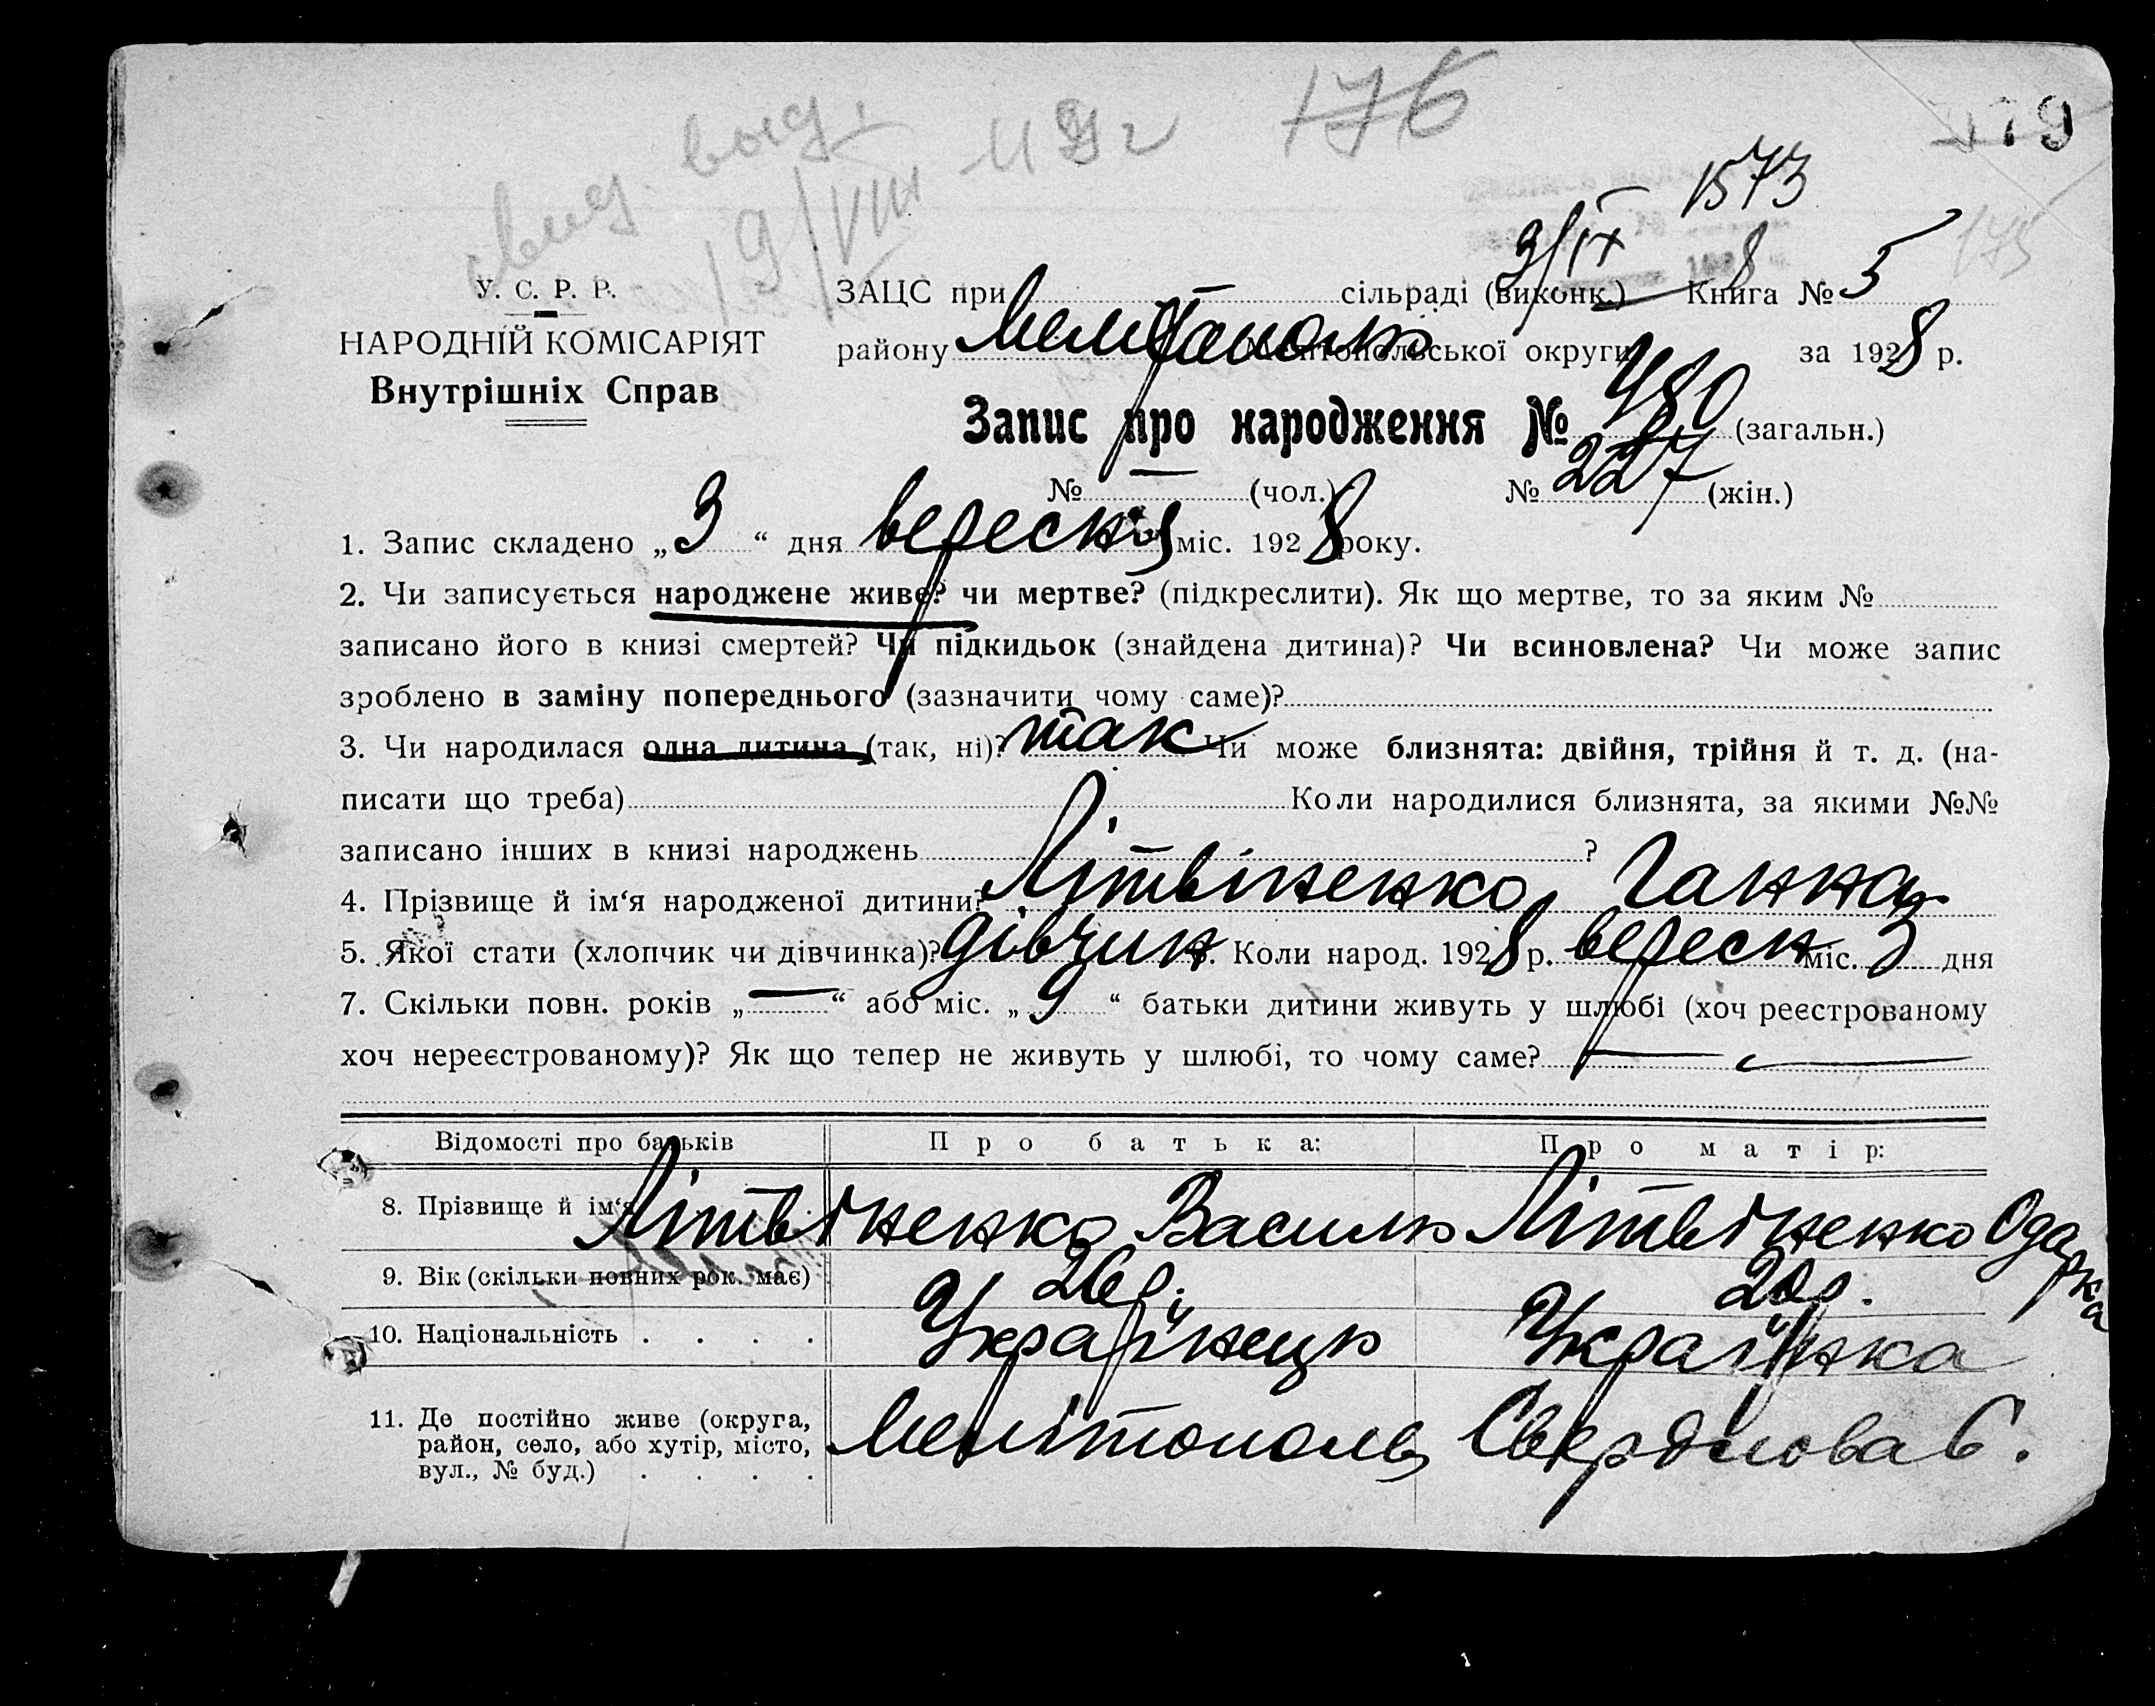 свид. выд.
9/VIII - 49 г
176
179
1573
175
3/IX
У. С. Р. Р.
НАРОДНІЙ КОМІСАРІЯТ
Внутрішніх Справ
ЗАЦС при сільраді (виконк.) Книга № 5
району Мелітополь Мелітопольської округи за 1928 р.
Запис про народження № 480 (загальн.)
№ — (чол.) № 227 (жін.)
1. Запис складено „ 3 “ дня вересня міс. 1928 року.
2. Чи записується народжене живе? чи мертве? (підкреслити). Як що мертве, то за яким №
записано його в книзі смертей? Чи підкидьок (знайдена дитина)? Чи всиновлена? Чи може запис
зроблено в заміну попереднього (зазначити чому саме)?
3. Чи народилася одна дитина (так, ні)? так Чи може близнята: двійня, трійня й т. д. (на-
писати що треба) Коли народилися близнята, за якими №№
записано інших в книзі народжень ?
4. Прізвище й ім‘я народженої дитини? Літвіненко, Ганна
5. Якої стати (хлопчик чи дівчинка)? дівчин. Коли народ. 1928 р. вересн міс. 3 дня
7. Скільки повн. років „ — “ або міс. „ 9 “ батьки дитини живуть у шлюбі (хоч реєстрованому
хоч нереєстрованому)? Як що тепер не живуть у шлюбі, то чому саме? —
Відомості про батьків Про батька: Про матір:
8. Прізвище й ім‘я Літвіненко Василь Літвіненко Одарка
9. Вік (скільки повних рок. має) 26 р. 20 р.
10. Національність . . . . Українець Українка
11. Де постійно живе (округа, район, село, або хутір, місто, вул., № буд.) . . . . Мелітополь, Свердлова 6.